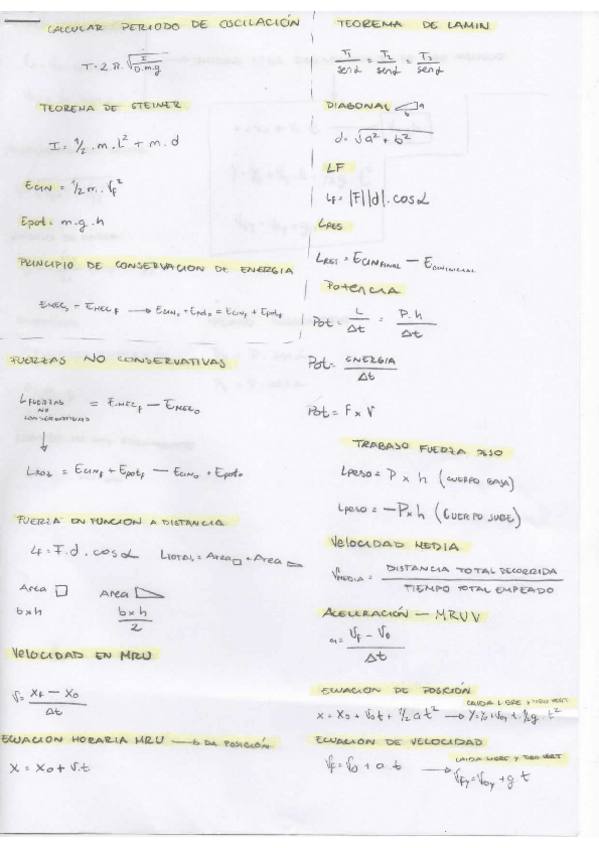 CALCULAR PERIODO DE OSCILACIÓN
T = 2 π . √ I / D.m.g
TEOREMA DE STEINER
I = 1/2 . m . L² + m . d
ECIN = 1/2 m . Vf²
Epot = m . g . h
PRINCIPIO DE CONSERVACION DE ENERGIA
EMEC₀ = EMEC F → ECIN₀ + EPot₀ = ECINf + EPotf
FUERZAS NO CONSERVATIVAS
L FUERZAS NO CONSERVATIVAS = EMECf − EMEC₀
= ECINf + Epotf − ECIN₀ + Epot₀
FUERZA EN FUNCION A DISTANCIA
LF = F . d . cos α LTOTAL = Area □ + Area
Area □ Area
b x h b x h / 2
VELOCIDAD EN MRU
V = XF − X0 / Δt
ECUACION HORARIA MRU → DE POSICIÓN
X = X0 + V.t
TEOREMA DE LAMIN
T1 / sen α = T2 / sen α = T3 / sen α
DIAGONAL a b
d = √ a² + b²
LF
LF = |F||d| . cos α
LRES = ECINFINAL − ECININICIAL
Potencia
Pot = L / Δt = P . h / Δt
Pot = ENERGIA / Δt
Pot = F x V
TRABAJO FUERZA PESO
LPESO = P x h (CUERPO BAJA)
LPESO = − P x h (CUERPO SUBE)
VELOCIDAD MEDIA
VMEDIA = DISTANCIA TOTAL RECORRIDA / TIEMPO TOTAL EMPEADO
ACELERACIÓN — MRUV
a = VF − V0 / Δt
ECUACION DE POSICIÓN
CAIDA LIBRE Y TIRO VERT.
X = X0 + V0 t + 1/2 a t² → Y = Y0 + V0y . t + 1/2 g . t²
ECUACION DE VELOCIDAD
CAIDA LIBRE Y TIRO VERT
VF = V0 + a . t → VFy = V0y + g t